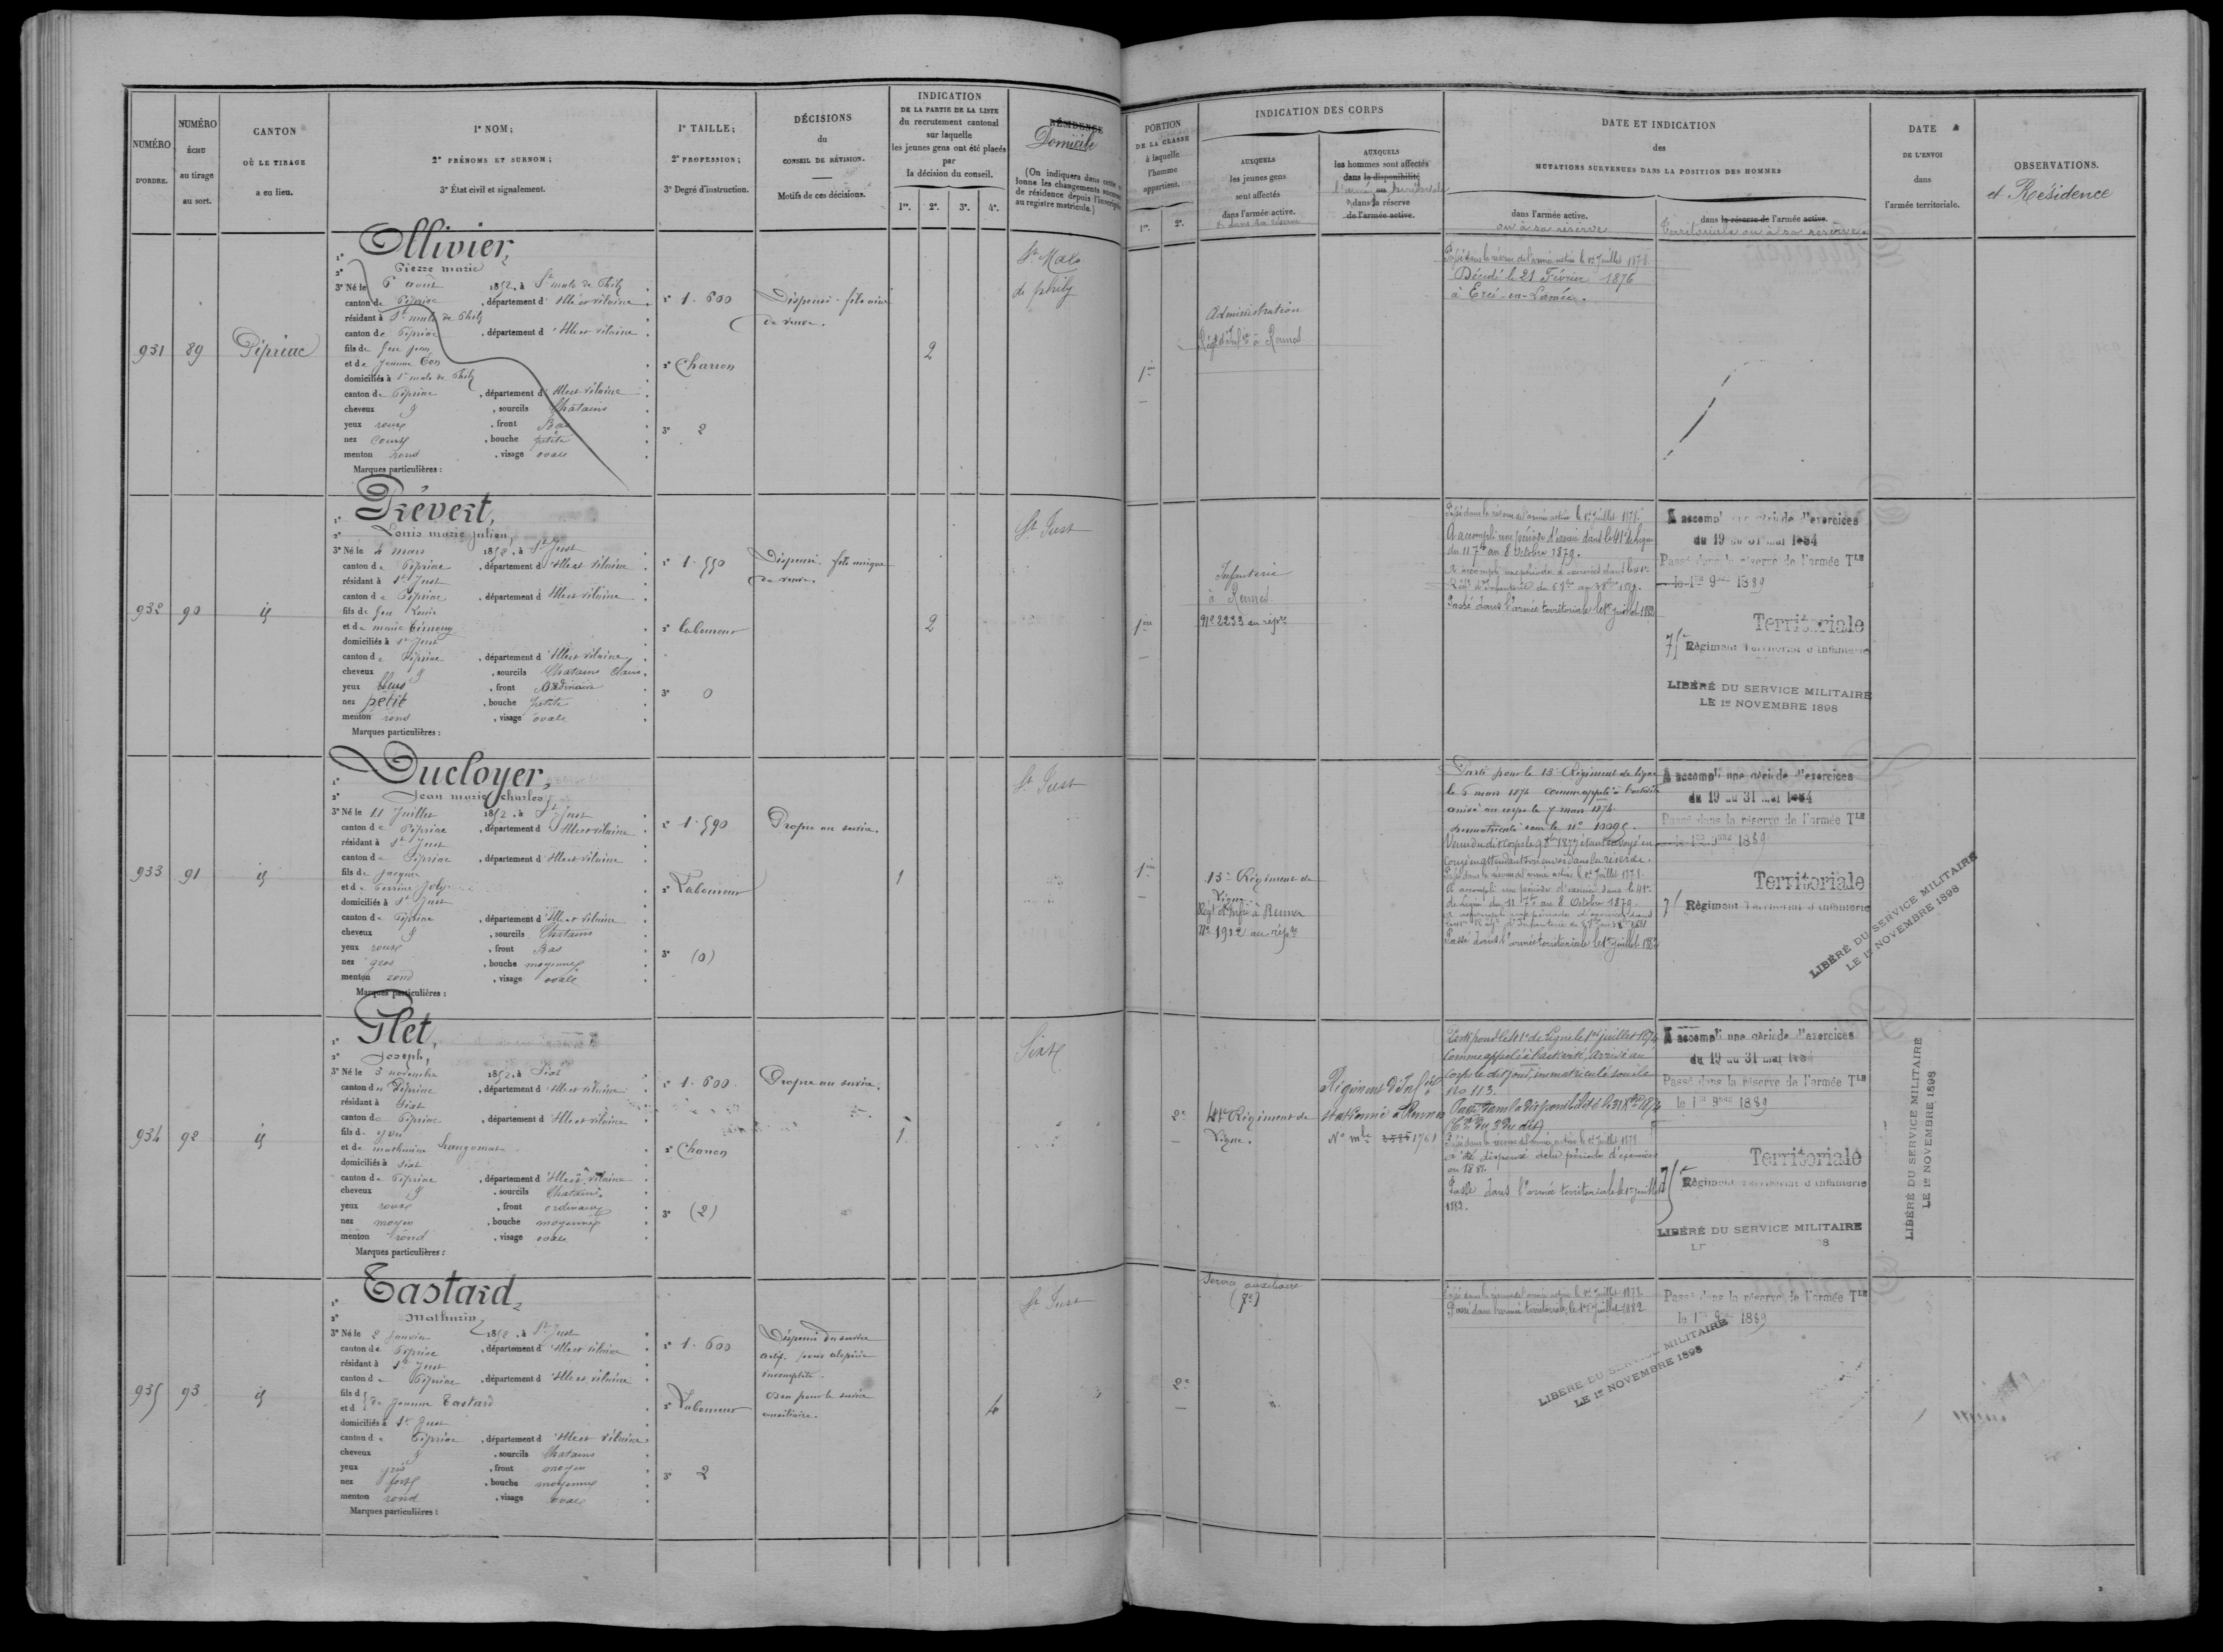 NUMÉRO
D'ORDRE.
NUMÉRO
ÉCHU
au tirage
au sort.
CANTON
OÙ LE TIRAGE
a eu lieu.
1° NOM;
2° PRÉNOMS ET SURNOM;
3° État civil et signalement.
1° TAILLE;
2° PROFESSION;
3° Degré d'instruction.
DÉCISIONS
du
CONSEIL DE RÉVISION.
Motifs de ces décisions.
INDICATION
DE LA PARTIE DE LA LISTE
du recrutement cantonal
sur laquelle
les jeunes gens ont été placés
par
la décision du conseil.
1re. 2e. 3e. 4e.
RÉSIDENCE
Domicile
(On indiquera dans cette
lonne les changements
de résidence depuis l'inscription
au registre matricule.)
PORTION
DE LA CLASSE
à laquelle
l'homme
appartient.
1re. 2e.
INDICATION DES CORPS
AUXQUELS
les jeunes gens
sont affectés
dans l'armée active.
AUXQUELS
les hommes sont affectés
dans la disponibilité
dans la réserve
de l'armée active.
DATE ET INDICATION
des
MUTATIONS SURVENUES DANS LA POSITION DES HOMMES
dans l'armée active.
ou à sa réserve
dans la réserve de l'armée active.
Territoriale ou à sa réserve
DATE
DE L'ENVOI
dans
l'armée territoriale.
OBSERVATIONS.
et Résidence
931
89
Pipriac
1° Ollivier,
2° Pierre marie
3° Né le 6 août 1852, à St malo de Phily
canton de Pipriac, département d'Ille et vilaine
résidant à St malo de Phily
canton de Pipriac, département d'Ille et vilaine
fils de feu jean
et de jeanne
domiciliés à St malo de Phily
canton de Pipriac, département d'Ille et vilaine
cheveux &, sourcils Chatains
yeux roux, front Bas
nez Court, bouche petite
menton rond, visage ovale
Marques particulières :
1° 1.600
2° Charron
3° 2
Dispensé. fils aîné
de veuve.
2
St Malo
de phily
1ère
Administration
Régt d'Infie à Rennes
Passé dans la réserve de l'armée active le 1er Juillet 1878
Décédé le 21 Février 1876
à Ercé-en-Lamée.
932
90
id
1° Prévert,
2° Louis marie julien,
3° Né le 4 mars 1852, à St Just
canton de Pipriac, département d'Ille et vilaine
résidant à St Just
canton de Pipriac, département d'Ille et vilaine
fils de feu Louis
et de marie
domiciliés à St Just
canton de Pipriac, département d'Ille et vilaine
cheveux &, sourcils Chatains clairs
yeux bleus, front ordinaire
nez petit, bouche petite
menton rond, visage ovale
Marques particulières :
1° 1.590
2° Laboureur
3° 0
Dispensé. fils unique
de veuve.
2
St Just
1ère
Infanterie
à Rennes
No 2233 au répre
Passé dans la réserve de l'armée active le 1er Juillet 1878
A accompli une période d'exercice dans le 41e de Ligne
du 11 7bre au 8 Octobre 1879.
Passé dans l'armée territoriale le 1er juillet 1882
A accompli une période d'exercices
du 19 au 31 mai 1884
Passé dans la réserve de l'armée Tle
le 1er 9bre 1889
Territoriale
75e Régiment Territorial d'Infanterie
LIBÉRÉ DU SERVICE MILITAIRE
LE 1er NOVEMBRE 1898
933
91
id
1° Ducloyer,
2° Jean marie charles,
3° Né le 11 Juillet 1852, à St Just
canton de Pipriac, département d'Ille et vilaine
résidant à St Just
canton de Pipriac, département d'Ille et vilaine
fils de jacques
et de Perrine Joly
domiciliés à St Just
canton de Pipriac, département d'Ille et vilaine
cheveux &, sourcils Chatains
yeux roux, front Bas
nez gros, bouche moyenne
menton rond, visage ovale
Marques particulières :
1° 1.590
2° Laboureur
3° (0)
Propre au service.
1
St Just
1ère
13e Régiment de
Ligne
Régt d'Infie à Rennes
No 1912 au répre
Parti pour le 13e Régiment de ligne
le 6 mars 1874 comme appelé à l'activité
arrivé au corps le 7 mars 1874.
immatriculé sous le no 10095.
congé en attendant son envoi dans la réserve.
Passé dans la réserve de l'armée active le 1er Juillet 1878
A accompli une période d'exercice dans le 41e
de Ligne du 11 7bre au 8 Octobre 1879.
Passé dans l'armée territoriale le 1er juillet 1882
A accompli une période d'exercices
du 19 au 31 mai 1884
Passé dans la réserve de l'armée Tle
le 1er 9bre 1889
Territoriale
75e Régiment Territorial d'Infanterie
LIBÉRÉ DU SERVICE MILITAIRE
LE 1er NOVEMBRE 1898
934
92
id
1° Flet,
2° Joseph,
3° Né le 3 novembre 1852, à Sixt
canton de Pipriac, département d'Ille et vilaine
résidant à Sixt
canton de Pipriac, département d'Ille et vilaine
fils de yves
et de mathurine
domiciliés à Sixt
canton de Pipriac, département d'Ille et vilaine
cheveux &, sourcils Chatains
yeux roux, front ordinaire
nez moyen, bouche moyenne
menton rond, visage ovale
Marques particulières :
1° 1.600
2° Charron
3° (2)
Propre au service.
1
Sixt
2e
41e Régiment de
Ligne.
Régiment d'Infie
stationné à Rennes
No mle 1761
Parti pour le 41e de Ligne le 1er juillet 1874
comme appelé à l'activité, arrivé au
corps le dit jour, immatriculé sous le
no 113.
Passé dans la disponibilité le 31 Xbre 1874
Passé dans la réserve de l'armée active le 1er Juillet 1878
a été dispensé de la période d'exercices
en 1881.
Passé dans l'armée territoriale le 1er juillet
1882.
A accompli une période d'exercices
du 19 au 31 mai 1884
Passé dans la réserve de l'armée Tle
le 1er 9bre 1889
Territoriale
75e Régiment Territorial d'Infanterie
LIBÉRÉ DU SERVICE MILITAIRE
LIBÉRÉ DU SERVICE MILITAIRE
LE 1er NOVEMBRE 1898
935
93
id
1° Tastard,
2° Mathurin,
3° Né le 2 Janvier 1852, à St Just
canton de Pipriac, département d'Ille et vilaine
résidant à St Just
canton de Pipriac, département d'Ille et vilaine
fils d
et d de Jeanne Tastard
domiciliés à St Just
canton de Pipriac, département d'Ille et vilaine
cheveux &, sourcils Chatains
yeux gris, front moyen
nez fort, bouche moyenne
menton rond, visage ovale
Marques particulières :
1° 1.600
2° Laboureur
3° 2
Dispensé du service
actif. pour alopécie
incomplète.
Bon pour le service
auxiliaire.
4
St Just
2e
Service auxiliaire
Passé dans la réserve de l'armée active le 1er Juillet 1878
Passé dans l'armée territoriale, le 1er Juillet 1882
LIBÉRÉ DU SERVICE MILITAIRE
LE 1er NOVEMBRE 1898
Passé dans la réserve de l'armée Tle
le 1er 9bre 1889